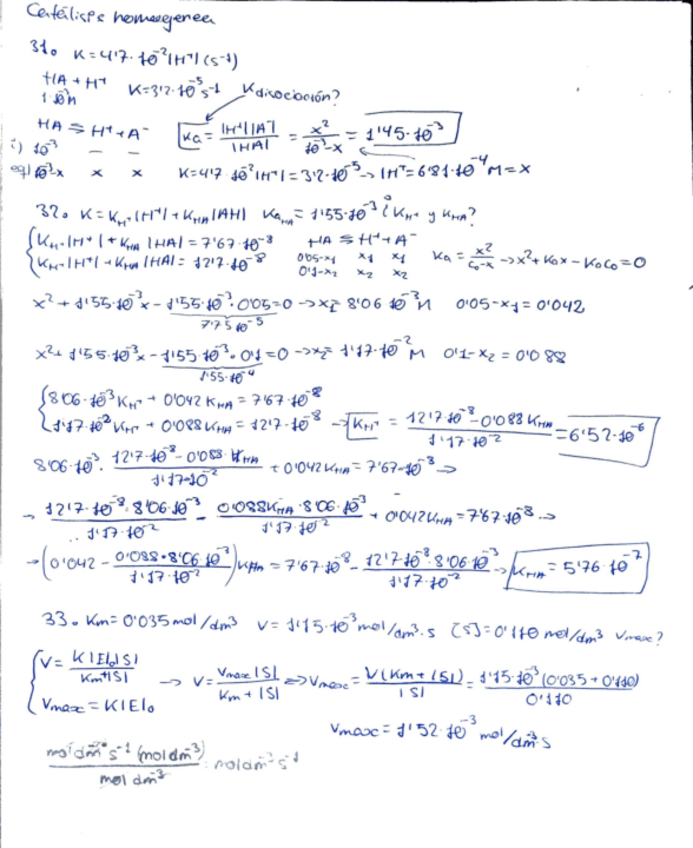 Catálisis homogenea
31. K=4'7·10⁻²|H⁺| (s⁻¹)
HA + H⁺ K=3'2·10⁻⁵ s⁻¹ Kdisociación?
HA ⇆ H⁺ + A⁻ Ka = |H⁺||A⁻| / |HA| = x² / 10⁻³-x = 1'45·10⁻³
i) 10⁻³ — —
eq) 10⁻³-x x x K=4'7·10⁻²|H⁺|=3'2·10⁻⁵ → |H⁺|=6'81·10⁻⁴ M = x
32. K=K_H⁺|H⁺|+K_HA|AH| Ka_HA=1'55·10⁻³ ¿K_H⁺ y K_HA?
K_H⁺|H⁺|+K_HA|HA|=7'67·10⁻⁸ HA ⇆ H⁺ + A⁻
K_H⁺|H⁺|+K_HA|HA|=12'7·10⁻⁸ 0'05-x₁ x₁ x₁ Ka = x² / C₀-x → x²+Kax-KaC₀=0
0'1-x₂ x₂ x₂
x²+1'55·10⁻³x-1'55·10⁻³·0'05=0 → x₁=8'06·10⁻³ M 0'05-x₁=0'042
7'75·10⁻⁵
x²+1'55·10⁻³x-1'55·10⁻³·0'1=0 → x₂=1'17·10⁻² M 0'1-x₂=0'088
1'55·10⁻⁴
8'06·10⁻³K_H⁺+0'042K_HA=7'67·10⁻⁸
1'17·10⁻²K_H⁺+0'088K_HA=12'7·10⁻⁸ → K_H⁺ = 12'7·10⁻⁸-0'088K_HA / 1'17·10⁻² = 6'52·10⁻⁶
8'06·10⁻³ · 12'7·10⁻⁸-0'088·K_HA / 1'17·10⁻² + 0'042K_HA=7'67·10⁻⁸ →
→ 12'7·10⁻⁸·8'06·10⁻³ / 1'17·10⁻² - 0'088K_HA·8'06·10⁻³ / 1'17·10⁻² + 0'042K_HA=7'67·10⁻⁸ →
→ (0'042 - 0'088·8'06·10⁻³ / 1'17·10⁻²) K_HA = 7'67·10⁻⁸ - 12'7·10⁻⁸·8'06·10⁻³ / 1'17·10⁻² → K_HA=5'76·10⁻⁷
33. Km=0'035 mol/dm³ V=1'15·10⁻³ mol/dm³·s [S]=0'110 mol/dm³ Vmax?
V = K|E|₀|S| / Km+|S| → V = Vmax|S| / Km+|S| ⇒ Vmax = V(Km+|S|) / |S| = 1'15·10⁻³(0'035+0'110) / 0'110
Vmax=K|E|₀
Vmax=1'52·10⁻³ mol/dm³·s
mol dm⁻³ s⁻¹ (mol dm⁻³) / mol dm⁻³ = mol dm⁻³ s⁻¹